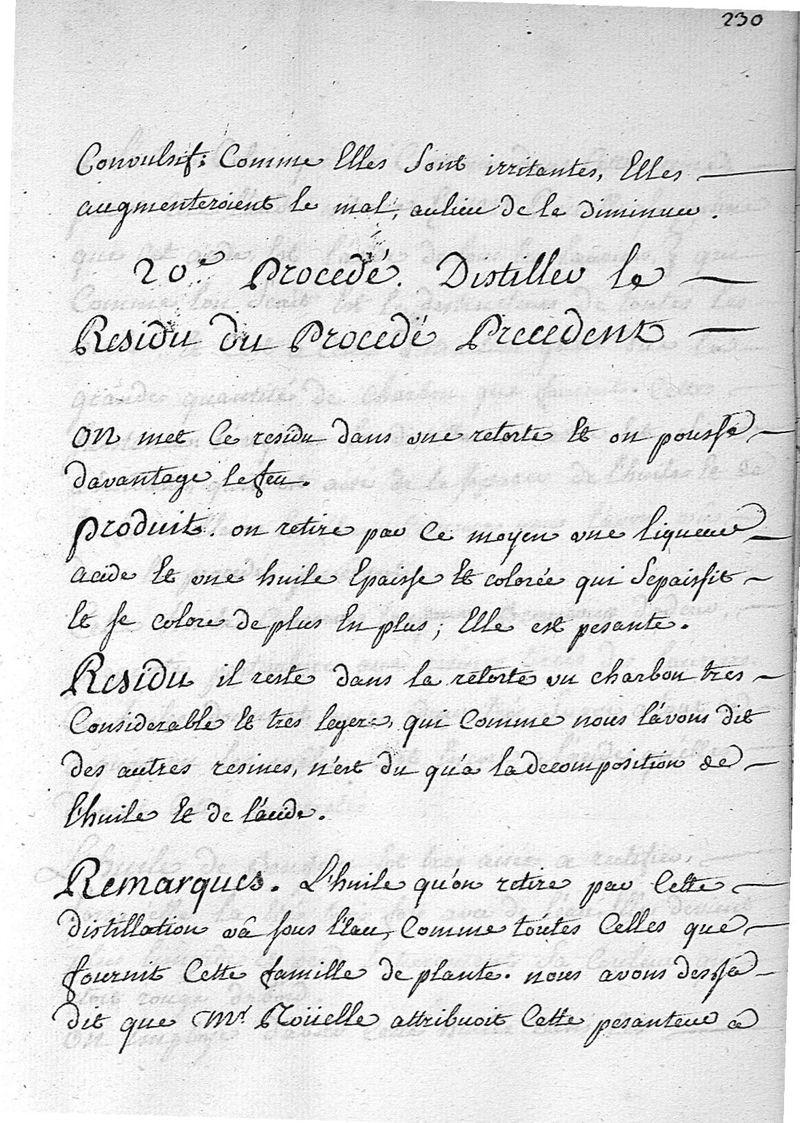 230
Convulsif; Comme Elles Sont irritantes, Elles
augmenteroient le mal, aulieu de le diminuer.
20e Procedé. Distiller le
Residu du Procedé Precedent
on met Ce residu dans une retorte Et on pousse
davantage le feu.
Produit. on retire par Ce moyen une liqueur
acide Et une huile Epaisse Et colorée qui Sepaissit
Et se colore de plus En plus; Elle est pesante.
Residu il reste dans la retorte un charbon tres
Considerable Et tres leger, qui Comme nous l'avons dit
des autres resines, n'est du qu'a la decomposition de
l'huile Et de l'acide.
Remarques. L'huile qu'on retire par Cette
distillation va sous l'Eau, Comme toutes Celles que
fournit Cette famille de plante. nous avons desja
dit que Mr Roüelle attribuoit Cette pesanteur a